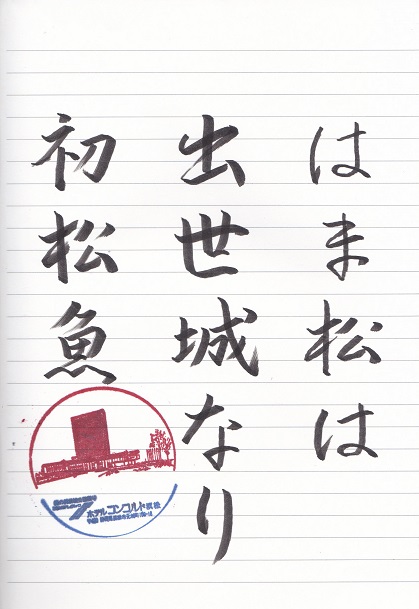 はま松は
出世城なり
初松魚
ホテルコンコルド浜松